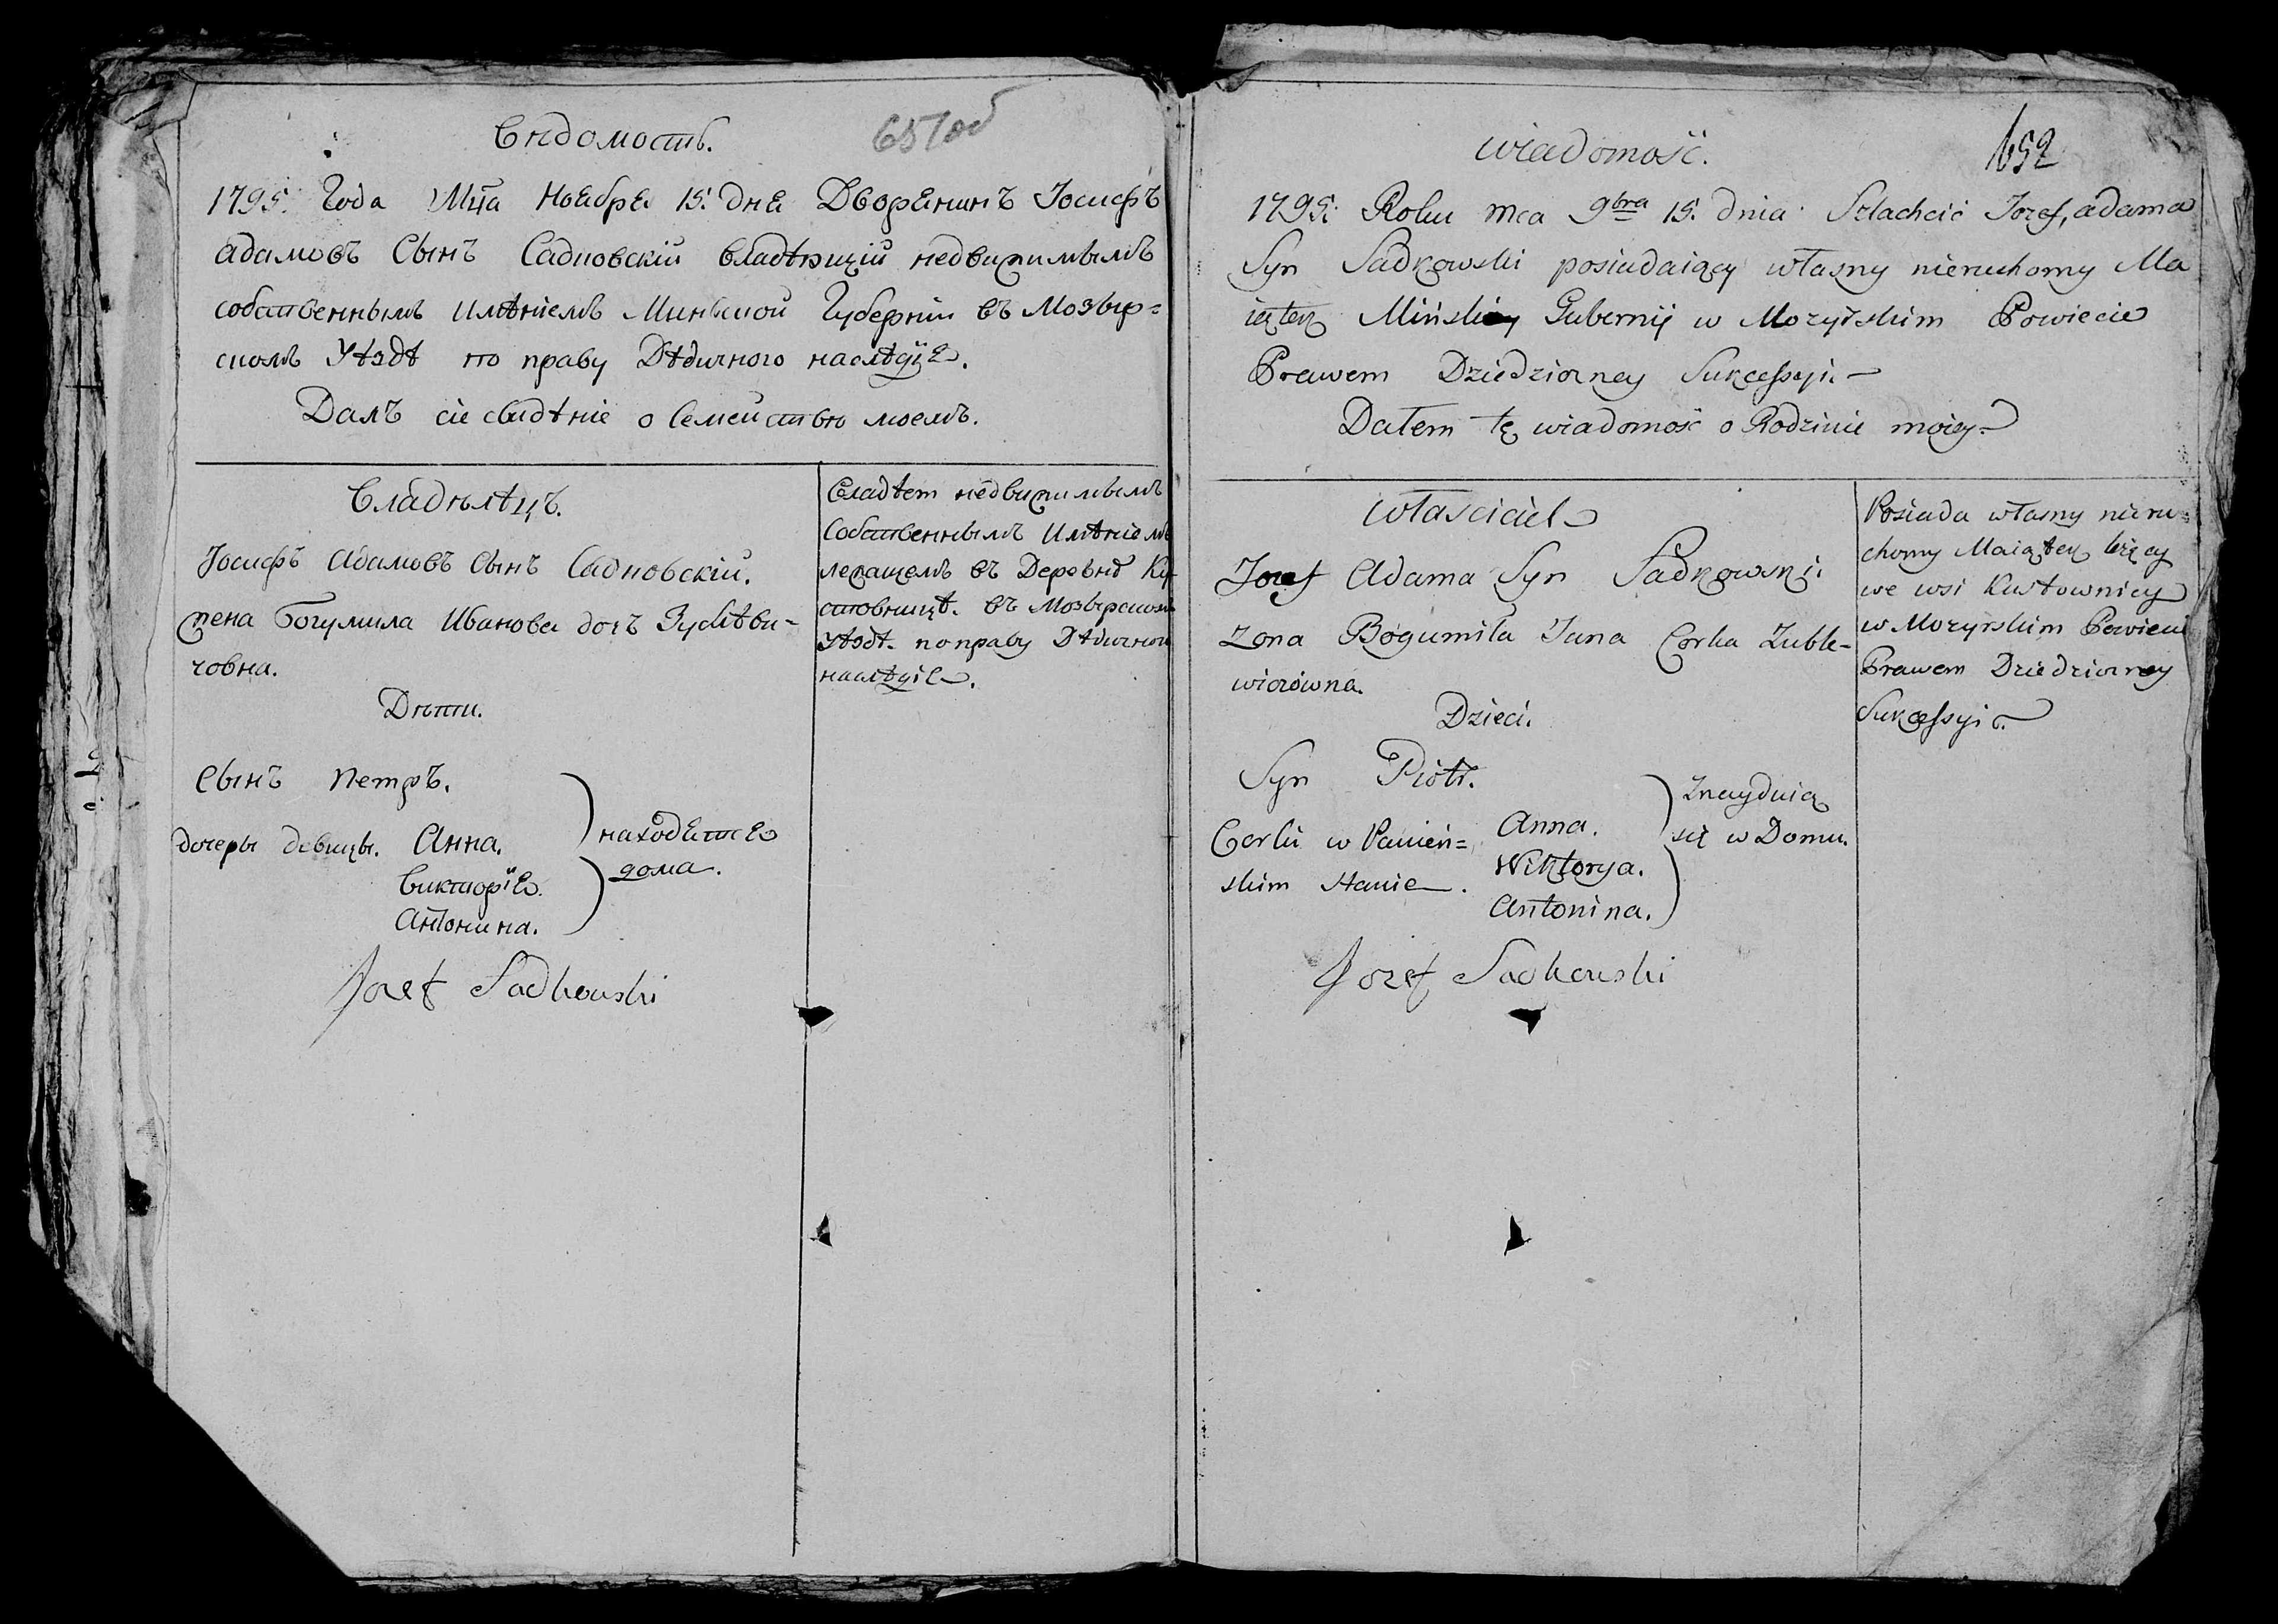 Вѣдомость.
651 об
1795: Года Мца Ноабря 15: дня Дворянинъ Іосифъ
Адамовъ Сынъ Садковскій владѣющій недвижимымъ
собственнымъ имѣніемъ Минской Губерніи въ Мозыр=
скомъ Уѣздѣ по праву Дѣдичного наслѣдія.
Далъ сіе свидѣніе о Семействѣ моемъ.
Владѣлѣцъ.
Іосифъ Адамовъ Сынъ Садковскій.
жена Богумила Иванова дочъ
човна.
Дѣти.
Сынъ Петръ.
дочеры девицы. Анна.
Викторїя.
Антонина.
находятся
дома.
Józef Sadkowski
Владѣет недвижимымъ
Собственнымъ Имѣніемъ
лежащемъ въ Деревнѣ Ку-
стовницѣ. въ Мозырском
Уѣздѣ. по праву Дѣдичного
наслѣдіе.
wiadomość.
652
1795: Roku mca 9bra 15: dnia Szlachcić Jozef, adama
Syn Sadkowski posiadaiący własny nieruchomy Ma
iątek Mińskiey Gubernij w Mozyrskim Powiecie
Prawem Dziedziczney Sukcessyi.—
Dałem tę wiadomość o Rodzinie moiey.
własciciel
Jozef Adama Syn Sadkowski.
Zona Bogumiła Jana Corka Zuble-
wiczówna.
Dzieci.
Syn Piotr.
Corki w Panień=
skim stanie.
Anna.
Wiktorya.
Antonina.
Znayduią
się w Domu.
Jozef Sadkowski
Posiada własny nieru=
chomy Maiątek leżący
we wsi Kustownicy
w Mozyrskim Powiecie
Prawem Dziedziczney
Sukcessyi.